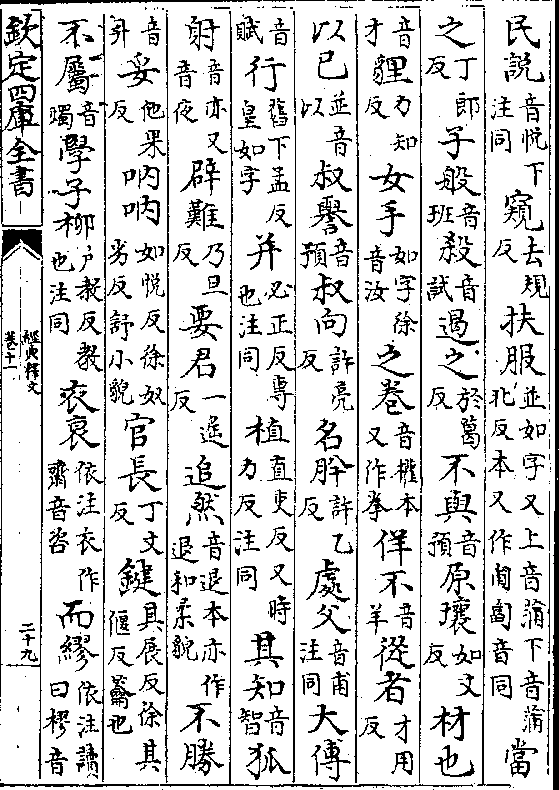 民說音悅下注同窺去規反扶服並如字又上音蒲下音蒲北反本又作匍匐音同當
之丁郎反子般音班殺音試遏之於葛反不與音預原壤如丈反材也
音才貍力知反女手如字徐音汝之卷音權本又作拳佯不音羊從者才用反
以已並音以叔譽音預叔向許亮反名肸許乙反處父音甫注同大傅
音賦行舊下孟反皇如字并必正反專也注同植直吏反又時力反注同其知音智狐
射音亦又音夜辟難乃旦反要君一遙反追然音退本亦作退和柔貌不勝
音升妥他果反吶吶如悅反徐奴劣反舒小貌官長丁丈反鍵其展反徐其偃反籥也
不屬音燭學子柳戶教反教也注同衣衰依注衣作齊音咨而繆依注讀曰樛音
欽定四庫全書
經典釋文
卷十一
二十九